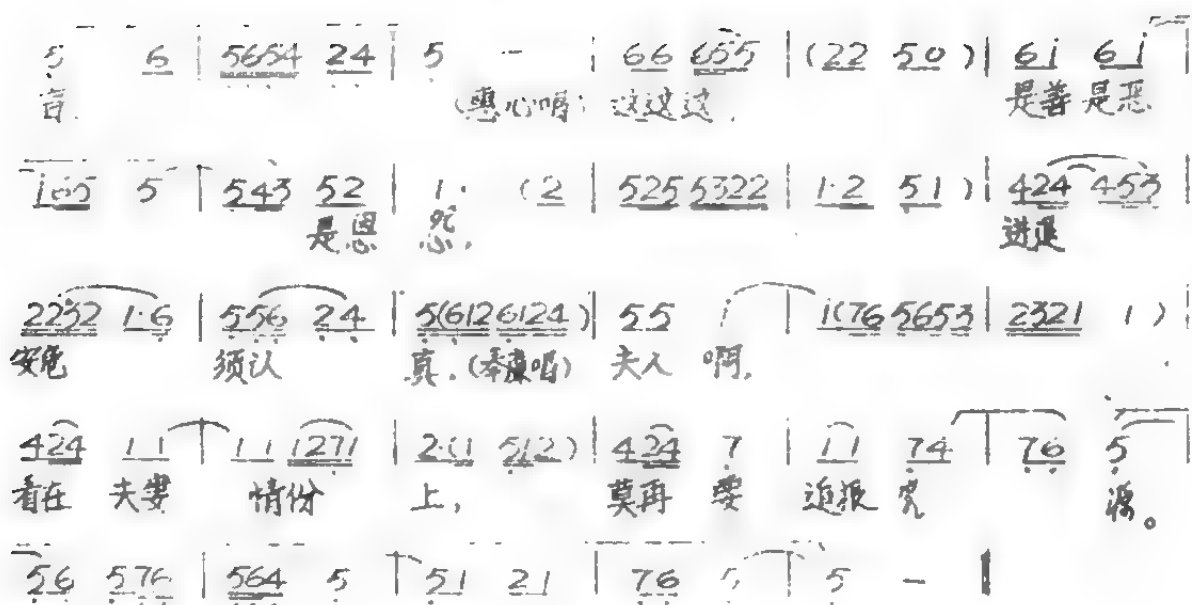 5 6 | 5654 24 | 5 - | 66 655 | (22 50) | 61 61 |
音. (惠心唱) 这这这, 是善是恶
165 5 | 543 52 | 1· (2 | 525 5322 | 1·2 51) | 424 453 |
是恩 怨, 进退
2232 1·6 | 556 24 | 5(612 6124) | 55 | 1(76 5653 | 2321 1) |
安危 须认 真. 唱) 夫人 啊,
424 11 | 11 1271 | 2·(1 512) | 424 7 | 11 74 | 76 5 |
看在 夫妻 情份 上, 莫再 要 追根 究 源。
56 576 | 564 5 | 51 21 | 76 5 | 5 - |